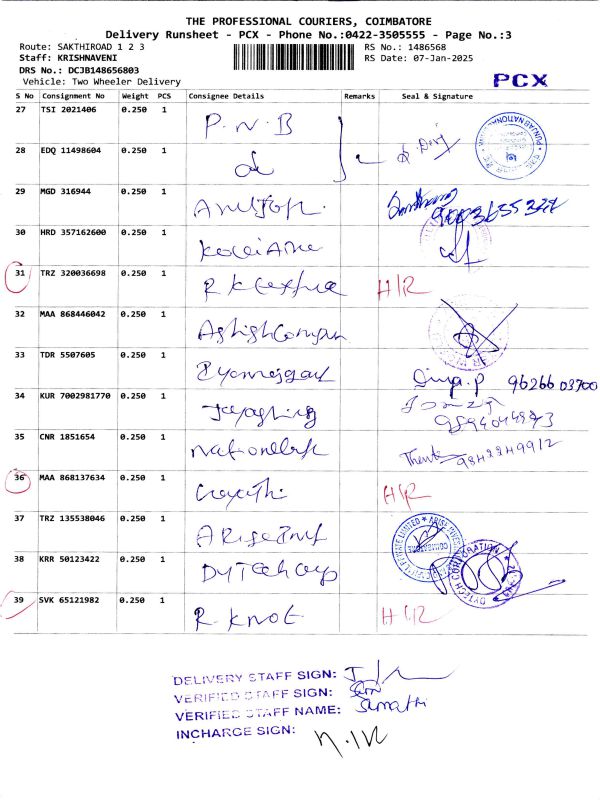 THE PROFESSIONAL COURIERS, COIMBATORE
Delivery Runsheet - PCX - Phone No.:0422-3505555 - Page No.:3
Route: SAKTHIROAD 1 2 3
RS No.: 1486568
Staff: KRISHNAVENI
RS Date: 07-Jan-2025
DRS No.: DCJB148656803
Vehicle: Two Wheeler Delivery
PCX
S No Consignment No Weight PCS Consignee Details Remarks Seal & Signature
27 TSI 2021406 0.250 1 P.N.B
28 EDQ 11498604 0.250 1 do
29 MGD 316944 0.250 1
30 HRD 357162600 0.250 1
31 TRZ 320036698 0.250 1 H/R
32 MAA 868446042 0.250 1
33 TDR 5507605 0.250 1 9626603700
34 KUR 7002981770 0.250 1
35 CNR 1851654 0.250 1 9842849912
36 MAA 868137634 0.250 1 Gayathi H/R
37 TRZ 135538046 0.250 1
38 KRR 50123422 0.250 1 DYTECH CORPORATION
39 SVK 65121982 0.250 1 R. Knot H/R
DELIVERY STAFF SIGN:
VERIFIED STAFF SIGN:
VERIFIED STAFF NAME: Sumathi
INCHARGE SIGN: